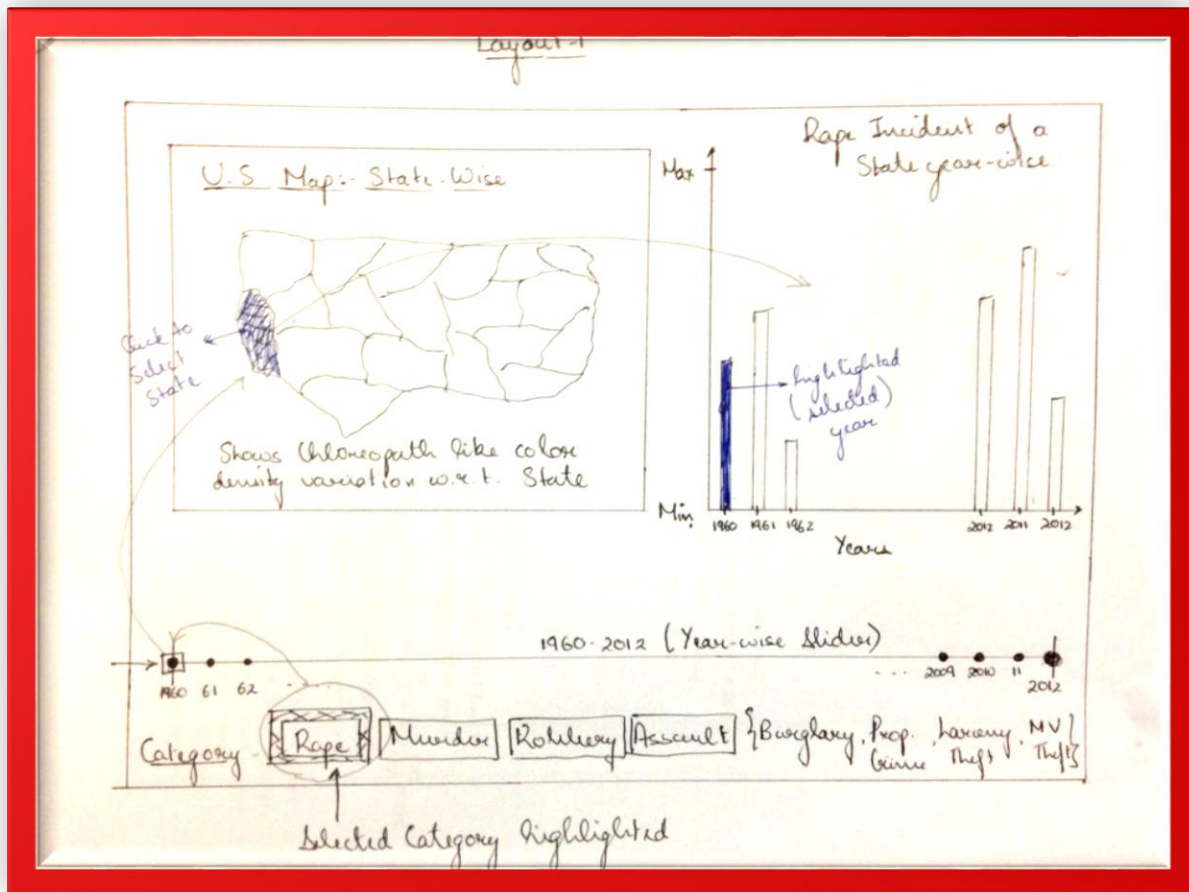 Layout-1
U.S Map:- State-Wise
Click to
Select
State
Shows Chloreopath like color
density variation w.r.t. State
Rape Incident of a
State year-wise
Max
highlighted
(selected)
year
Min
1960 1961 1962 2012 2011 2012
Years
1960-2012 (Year-wise Slider)
1960 61 62 .... .... 2009 2010 11 2012
Category - Rape Murder Robbery Assault {Burglary, Prop. Crime, Larceny Theft, MV Theft}
Selected Category highlighted